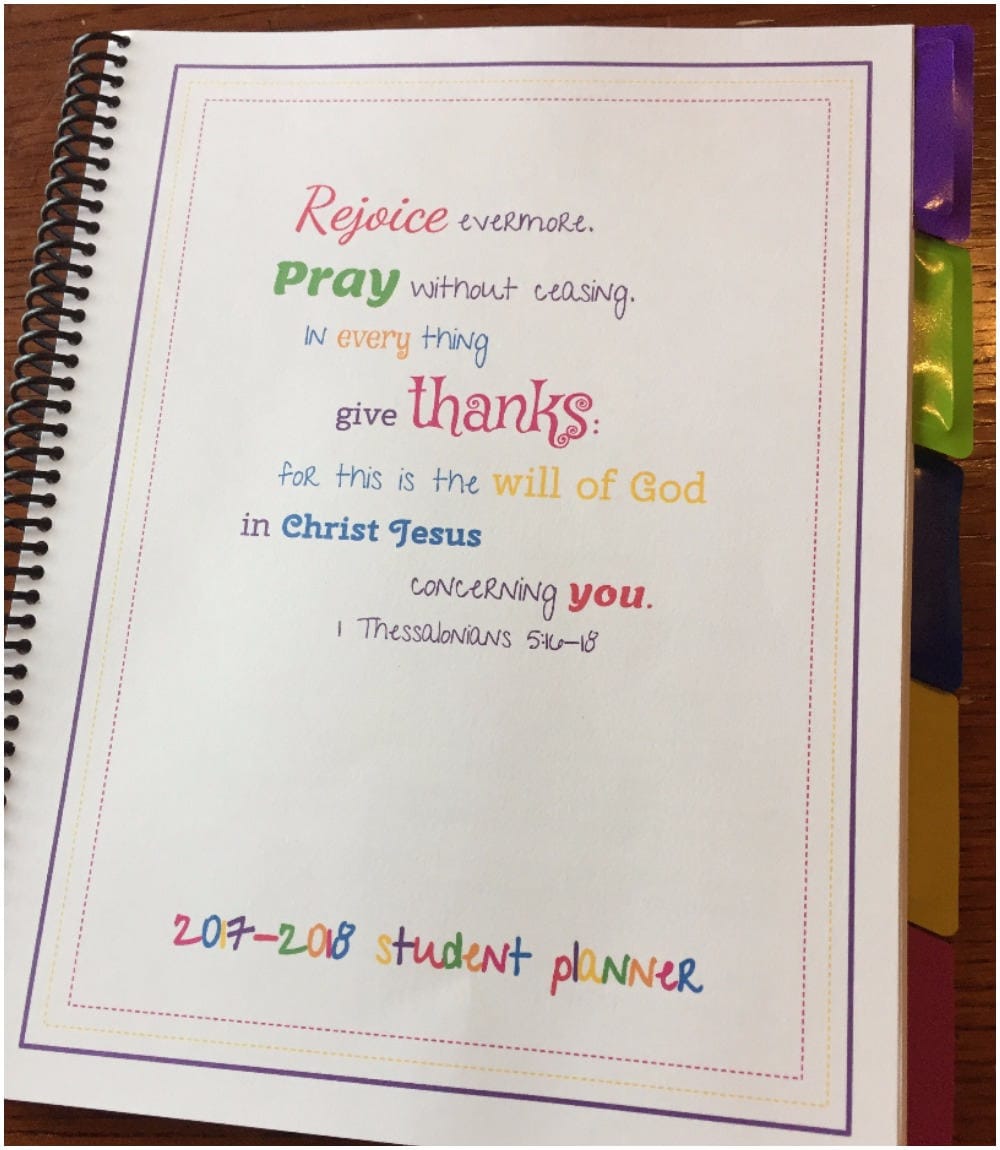 Rejoice evermore.
Pray without ceasing.
IN every thing
give thanks:
for this is the will of God
in Christ Jesus
concerning you.
1 Thessalonians 5:16-18
2017-2018 student planner